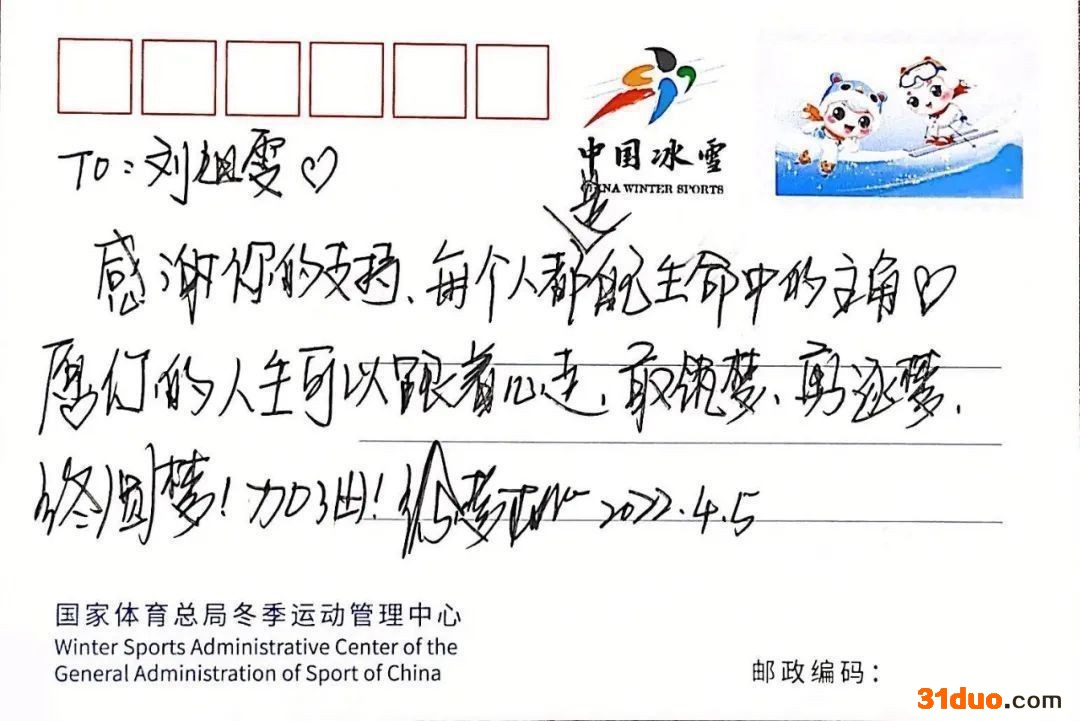 中国冰雪
CHINA WINTER SPORTS
TO:刘祖雯♡
感谢你的支持、每个人都是自己生命中的主角♡
愿你的人生可以跟着心走、敢筑梦、勇逐梦、
终圆梦!加油!徐梦桃 2022.4.5
国家体育总局冬季运动管理中心
Winter Sports Administrative Center of the
General Administration of Sport of China
邮政编码:
31duo.com